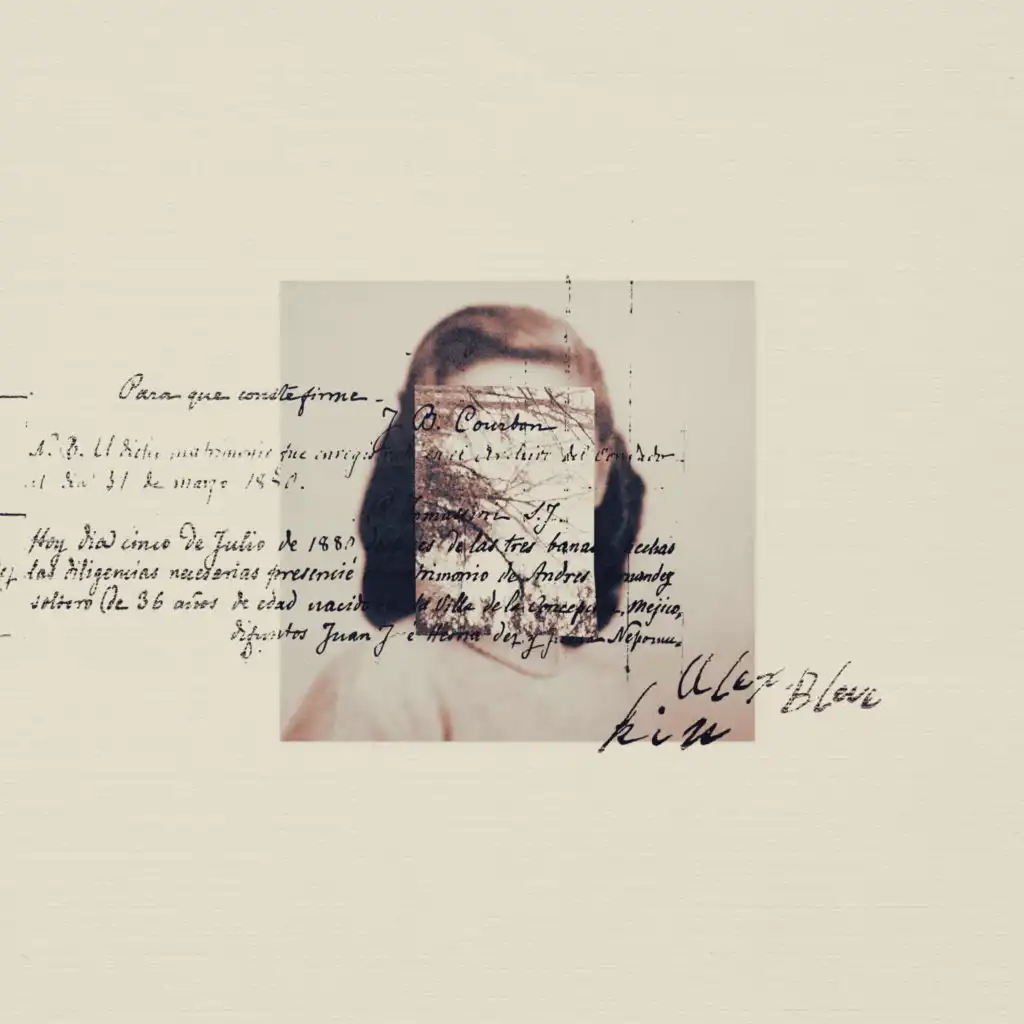 Para que conste firme
J. B. Courbon
N. B. El dicho matrimonio fue en el Archivo del Condado
el dia 31 de marzo 1880.
S.J.
Hoy dia cinco de Julio de 188 de las tres banas hechas
las diligencias necesarias presencié matrimonio de Andres
soltero (de 36 años de edad nacido en la Villa de la Mejico,
difuntos Juan J e y Nepomu
Alex Bleue
kin